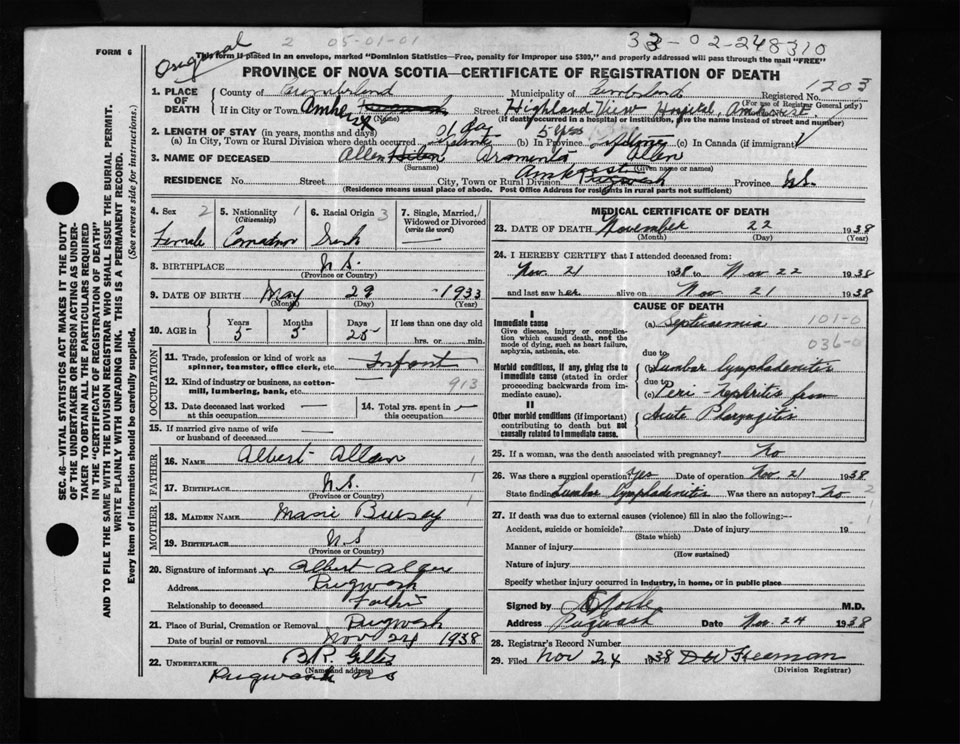 FORM 6
Original
2 05-01-01
33-02-248310
This form if placed in an envelope, marked "Dominion Statistics—Free, penalty for improper use $300," and properly addressed will pass through the mail "FREE"
PROVINCE OF NOVA SCOTIA—CERTIFICATE OF REGISTRATION OF DEATH
1. PLACE OF DEATH
County of Cumberland Municipality of Cumberland Registered No. 1203
(For use of Registrar General only)
If in City or Town Amherst Street Highland View Hospital, Amherst.
(Name) (If death occurred in a hospital or institution, give the name instead of street and number)
2. LENGTH OF STAY (in years, months and days)
(a) In City, Town or Rural Division where death occurred 01 day (b) In Province 5 yrs (c) In Canada (if immigrant)
3. NAME OF DECEASED Allen Araminta Allen
(Surname) (Given name or names)
RESIDENCE No. Street City, Town or Rural Division Amherst Pugwash Province N.S.
(Residence means usual place of abode. Post Office Address for residents in rural parts not sufficient)
SEC. 46—VITAL STATISTICS ACT MAKES IT THE DUTY
OF THE UNDERTAKER OR PERSON ACTING AS UNDER-
TAKER TO OBTAIN ALL THE PARTICULARS REQUIRED
IN THE "CERTIFICATE OF REGISTRATION OF DEATH"
AND TO FILE THE SAME WITH THE DIVISION REGISTRAR WHO SHALL ISSUE THE BURIAL PERMIT.
WRITE PLAINLY WITH UNFADING INK. THIS IS A PERMANENT RECORD.
Every item of information should be carefully supplied. (See reverse side for instructions.)
4. Sex 2
Female
5. Nationality 1
(Citizenship)
Canadian
6. Racial Origin 3
7. Single, Married, Widowed or Divorced
(write the word)
—
8. BIRTHPLACE N.S.
(Province or Country)
9. DATE OF BIRTH May 29 1933
(Month) (Day) (Year)
10. AGE in Years Months Days If less than one day old
5 5 25 hrs. or min.
OCCUPATION
11. Trade, profession or kind of work as
spinner, teamster, office clerk, etc. Infant
12. Kind of industry or business, as cotton-
mill, lumbering, bank, etc. 913
13. Date deceased last worked
at this occupation —
14. Total yrs. spent in
this occupation —
15. If married give name of wife
or husband of deceased —
FATHER
16. NAME Albert Allan 1
17. BIRTHPLACE N.S. 1
(Province or Country)
MOTHER
18. MAIDEN NAME 1
19. BIRTHPLACE N.S
(Province or Country)
20. Signature of informant Albert
Address Pugwash
Relationship to deceased Father
21. Place of Burial, Cremation or Removal Pugwash
Date of burial or removal Nov 24 1938
22. UNDERTAKER
(Name and address)
Pugwash NS
MEDICAL CERTIFICATE OF DEATH
23. DATE OF DEATH November 22 1938
(Month) (Day) (Year)
24. I HEREBY CERTIFY that I attended deceased from:
Nov. 21 1938 to Nov 22 1938
and last saw her alive on Nov. 21 1938
CAUSE OF DEATH
I
Immediate cause
Give disease, injury or complica-
tion which caused death, not the
mode of dying, such as heart failure,
asphyxia, asthenia, etc.
(a) Septicemia 101-0
036-0
due to
Morbid conditions, if any, giving rise to
immediate cause (stated in order
proceeding backwards from im-
mediate cause).
(b) Lumbar lymphadenitis
due to
(c) Peri-Nephritis from
II
Other morbid conditions (if important)
contributing to death but not
causally related to immediate cause.
Acute Pharyngitis
25. If a woman, was the death associated with pregnancy? No
26. Was there a surgical operation? yes Date of operation Nov. 21 1938
State finding Lumbar lymphadenitis Was there an autopsy? No 2
27. If death was due to external causes (violence) fill in also the following:—
Accident, suicide or homicide? Date of injury 19
(State which)
Manner of injury
(How sustained)
Nature of injury
Specify whether injury occurred in industry, in home, or in public place
Signed by M.D.
Address Pugwash Date Nov. 24 1938
28. Registrar's Record Number
29. Filed Nov 24 1938 D W Freeman
(Division Registrar)